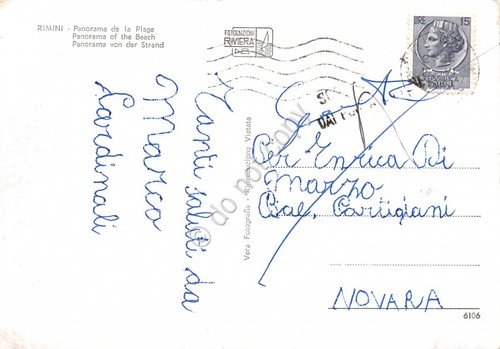 RIMINI - Panorama de la Plage
Panorama of the Beach
Panorama von der Strand
FOTOEDIZIONI
RIVIERA
15
Tanti saluti da
Marco
Cardinali
© do not copy
Vera Fotografia - Riproduzione Vietata
Per Enrica Di
Marzo
Bial. Partigiani
NOVARA
6106